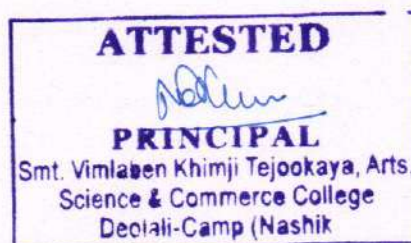 ATTESTED
PRINCIPAL
Smt. Vimlaben Khimji Tejookaya, Arts.
Science & Commerce College
Deolali-Camp (Nashik